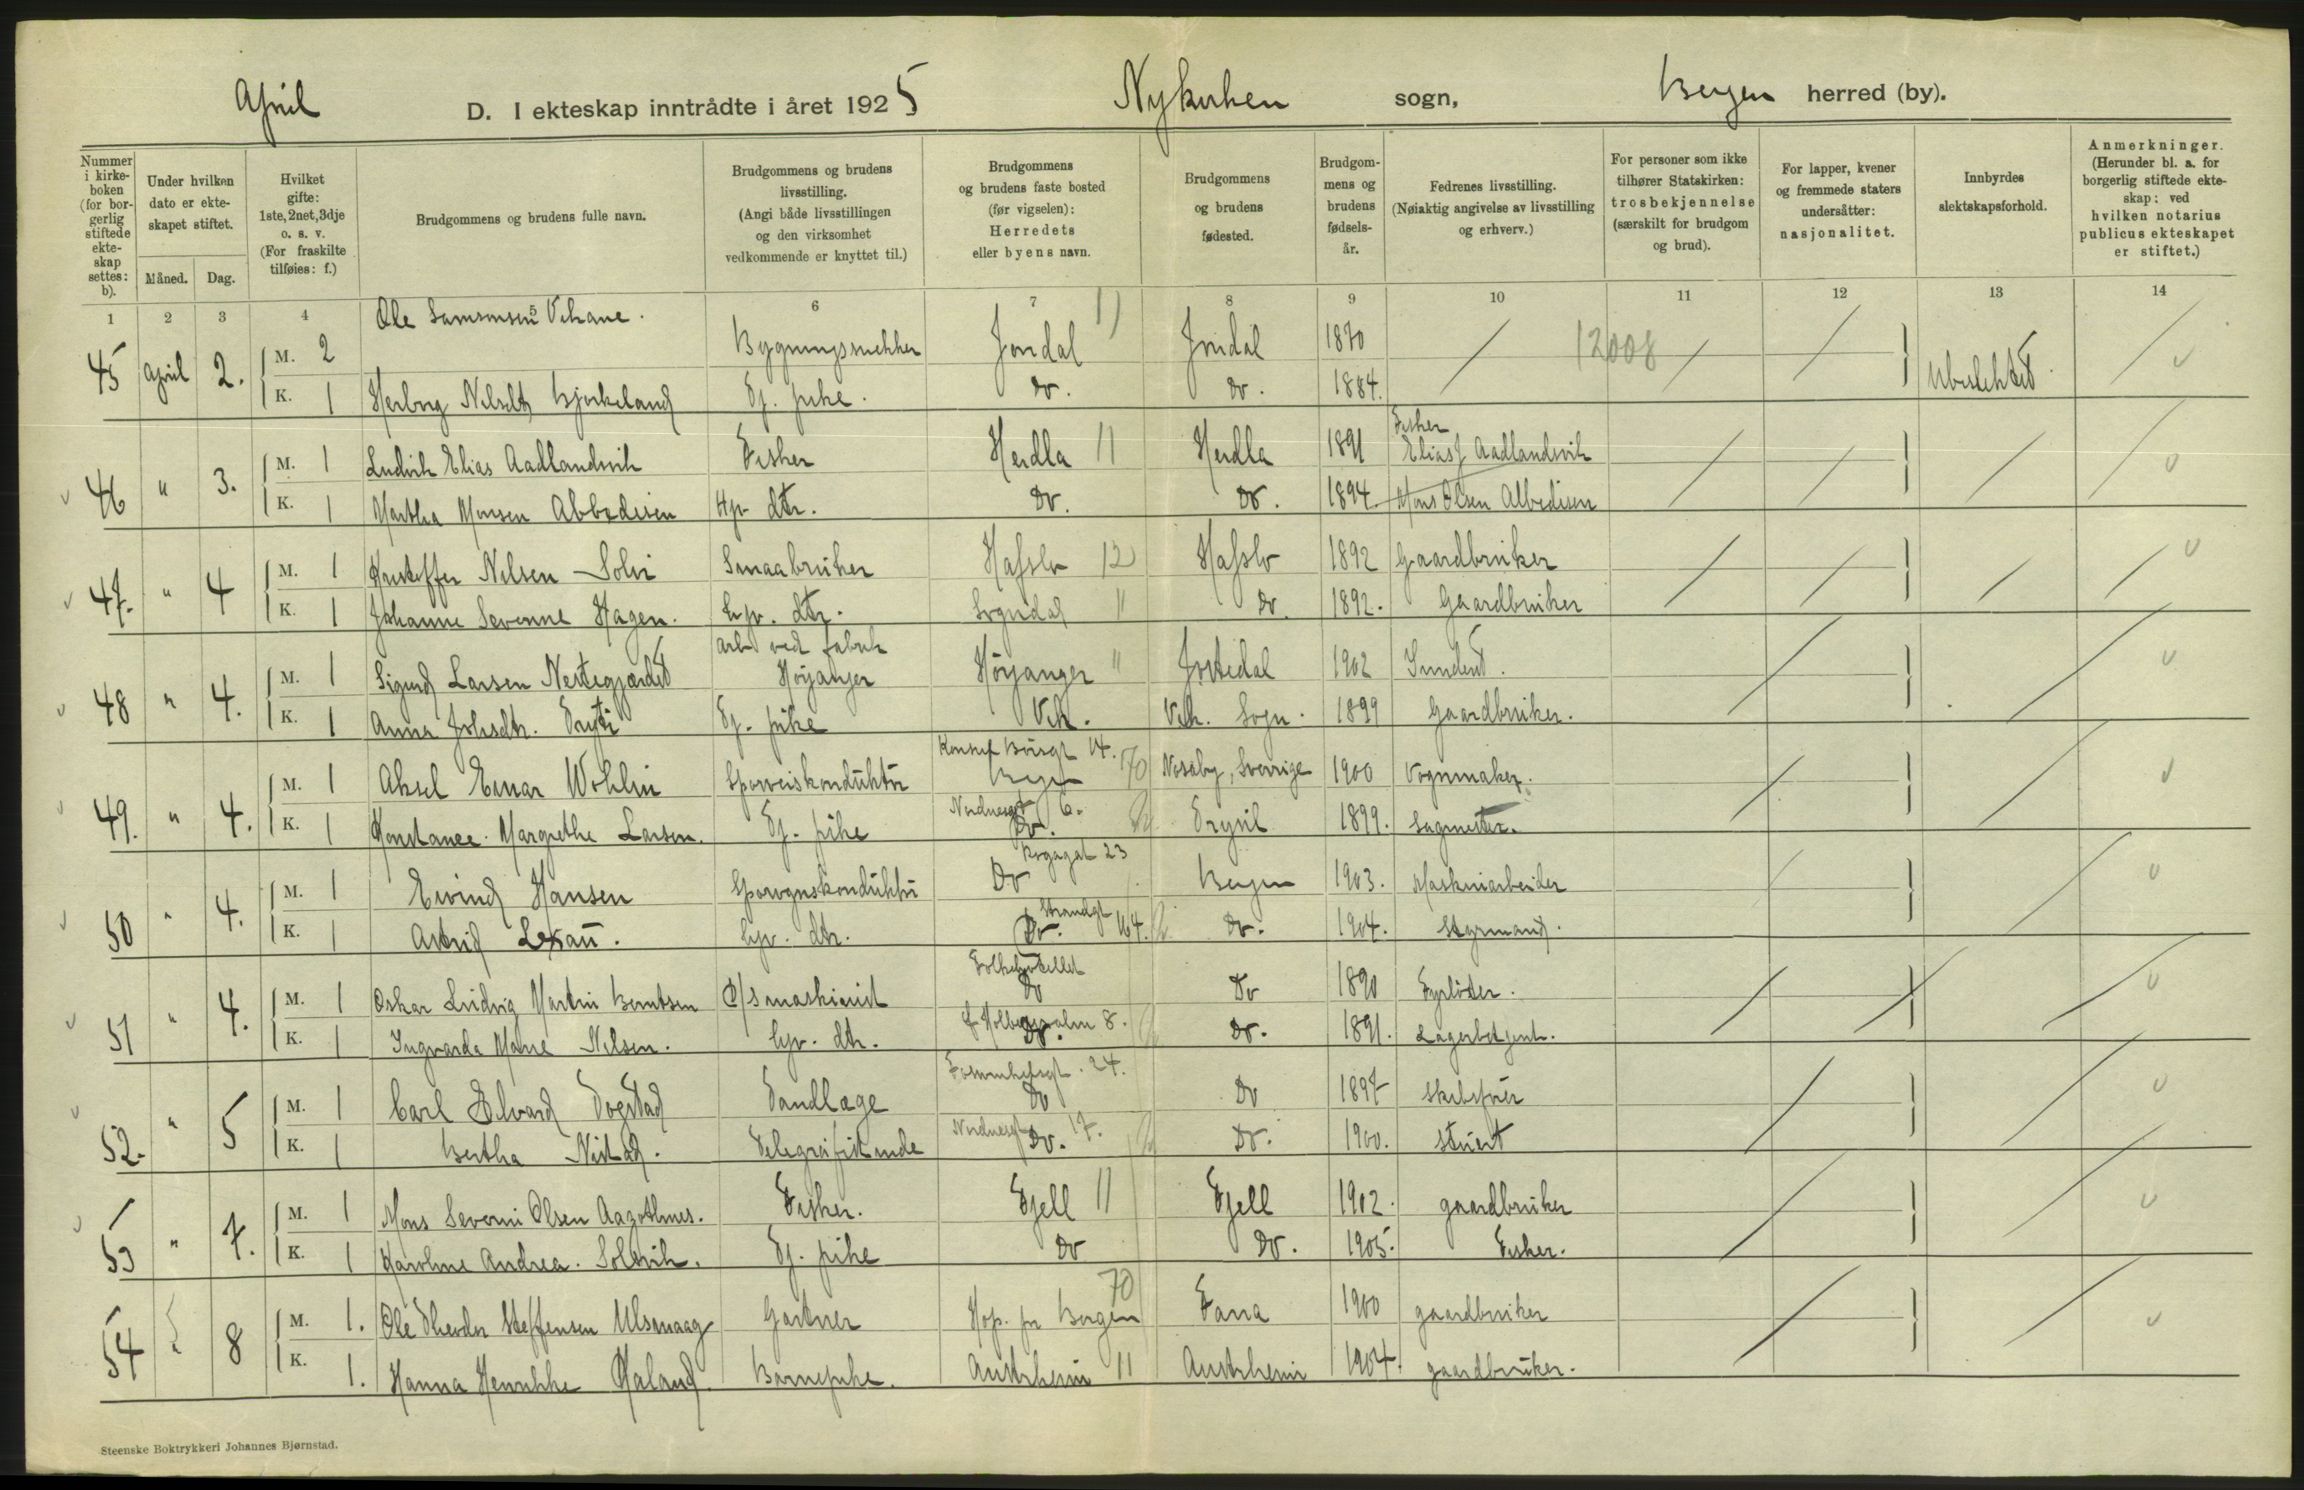 April D. I ekteskap inntrådte i året 1925 Nykirken sogn, Bergen herred (by).
Nummer i kirke-boken (for bor-gerlig stiftede ekte-skap settes: b).
Under hvilken dato er ekte-skapet stiftet.
Måned. Dag.
Hvilket gifte: 1ste, 2net, 3dje o. s. v. (For fraskilte tilføies: f.)
Brudgommens og brudens fulle navn.
Brudgommens og brudens livsstilling. (Angi både livsstillingen og den virksomhet vedkommende er knyttet til.)
Brudgommens og brudens faste bosted (før vigselen): Herredets eller byens navn.
Brudgommens og brudens fødested.
Brudgom-mens og brudens fødsels-år.
Fedrenes livsstilling. (Nøiaktig angivelse av livsstilling og erhverv.)
For personer som ikke tilhører Statskirken: trosbekjennelse (særskilt for brudgom og brud).
For lapper, kvener og fremmede staters undersåtter: nasjonalitet.
Innbyrdes slektskapsforhold.
Anmerkninger. (Herunder bl. a. for borgerlig stiftede ekte-skap: ved hvilken notarius publicus ekteskapet er stiftet.)
1 2 3 4 5 6 7 8 9 10 11 12 13 14
45 April 2. M. 2 Ole Samsonsen Vikane. Bygningssnekker Jondal 11 Jondal 1870 12008
K. 1 Herborg Nilsdtr Bjørkeland Tj. pike. Do. Do. 1884. Ubeslektet.
46 " 3. M. 1 Ludvik Elias Aadlandsvik Fisker Herdla 11 Herdla 1891 Fisker Elias J Aadlandsvik
K. 1 Martha Monsen Abbedisen Hjv dtr. Do. Do. 1894 Mons Olsen Abbedisen
47. " 4 M. 1 Kristoffer Nilsen Solvi Smaabruker Hafslo 12 Hafslo 1892 Gaardbruker
K. 1 Johanne Sevrine Hagen. hjv. dtr. Sogndal 11 Do. 1892. Gaardbruker
48 " 4. M. 1 Sigurd Larsen Nestegjærdet Arb ved fabrik Høyanger Høyanger " Jostedal 1902
K. 1 Anna Johsdtr. Tryti Tj. pike Vik. Vik. Sogn. 1899 Gaardbruker.
49. " 4. M. 1 Aksel Einar Wohlin Sporveiskonduktør Bergen 70 Nosaby, Sverrige 1900 Vognmaker.
K. 1 Konstance Margrethe Larsen. Tj. pike Nordnesgt 6. Do. Trysil 1899. Sagmester.
50 " 4. M. 1 Eivind Hansen Sporvognskonduktør Do Bergen 1903. Maskinarbeider
K. 1 Astrid Lexau. hjv. dtr. Strandgt 164. Do. Do. 1904. Styrmand.
51 " 4. M. 1 Oskar Ludvig Martin Berntsen D/s maskinist Folkehotellet Do Do 1890 Fyrbøter.
K. 1 Ingvarda Marie Nilsen. hjv. dtr. Holbergsalm 8. Do. Do. 1891. Lagerbetjent.
52. " 5 M. 1 Carl Edvard Togstad Tandlæge 24. Do Do 1897 Skibsfører
K. 1 Bertha Nistad. Telegrafistinde Nordnesgt 17. Do. Do. 1900. Stuert
53 " 7. M. 1 Mons Severin Olsen Aagotnes. Fisker. Fjell 11 Fjell 1902. gaardbruker
K. 1 Karoline Andrea Solsvik. Tj. pike Do Do. 1905. Fisker.
54 " 8 M. 1. Ole Theodor Steffensen Ulsmaag Gartner Hop. pr Bergen 70 Fana 1900 gaardbruker
K. 1. Hanna Henrikke Haland. Barnepike. Austrheim 11 Austrheim 1904. gaardbruker.
Steenske Boktrykkeri Johannes Bjørnstad.